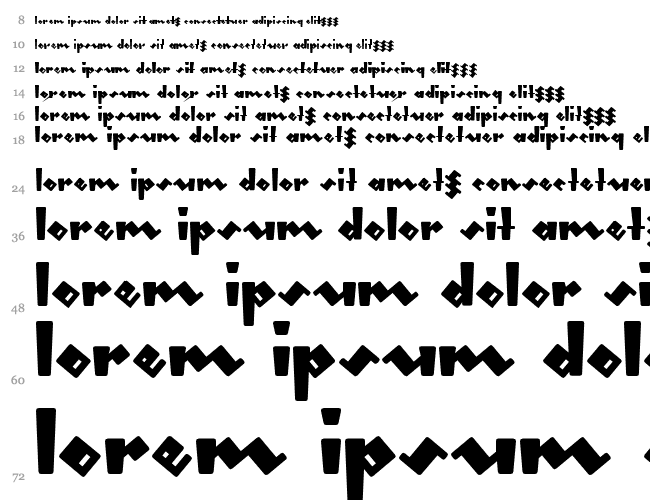 8 lorem ipsum dolor sit amet$ consectetuer adipiscing elit$$$
10 lorem ipsum dolor sit amet$ consectetuer adipiscing elit$$$
12 lorem ipsum dolor sit amet$ consectetuer adipiscing elit$$$
14 lorem ipsum dolor sit amet$ consectetuer adipiscing elit$$$
16 lorem ipsum dolor sit amet$ consectetuer adipiscing elit$$$
18 lorem ipsum dolor sit amet$ consectetuer adipiscing el
24 lorem ipsum dolor sit amet$ consectetuer
36 lorem ipsum dolor sit amet$
48 lorem ipsum dolor si
60 lorem ipsum dol
72 lorem ipsum